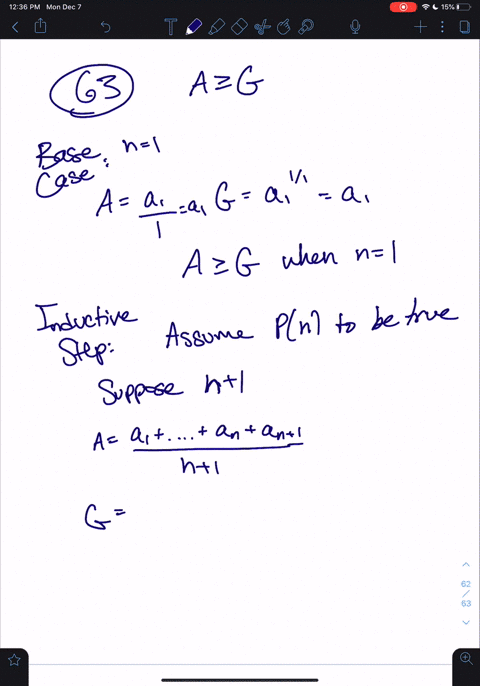 12:36 PM Mon Dec 7
15%
63 A ≥ G
Base Case: n=1
A = a₁/1 = a₁ G = a₁^(1/1) = a₁
A ≥ G when n=1
Inductive Step: Assume P(n) to be true
Suppose n+1
A = (a₁+....+aₙ+aₙ₊₁)/(n+1)
G =
62
/
63